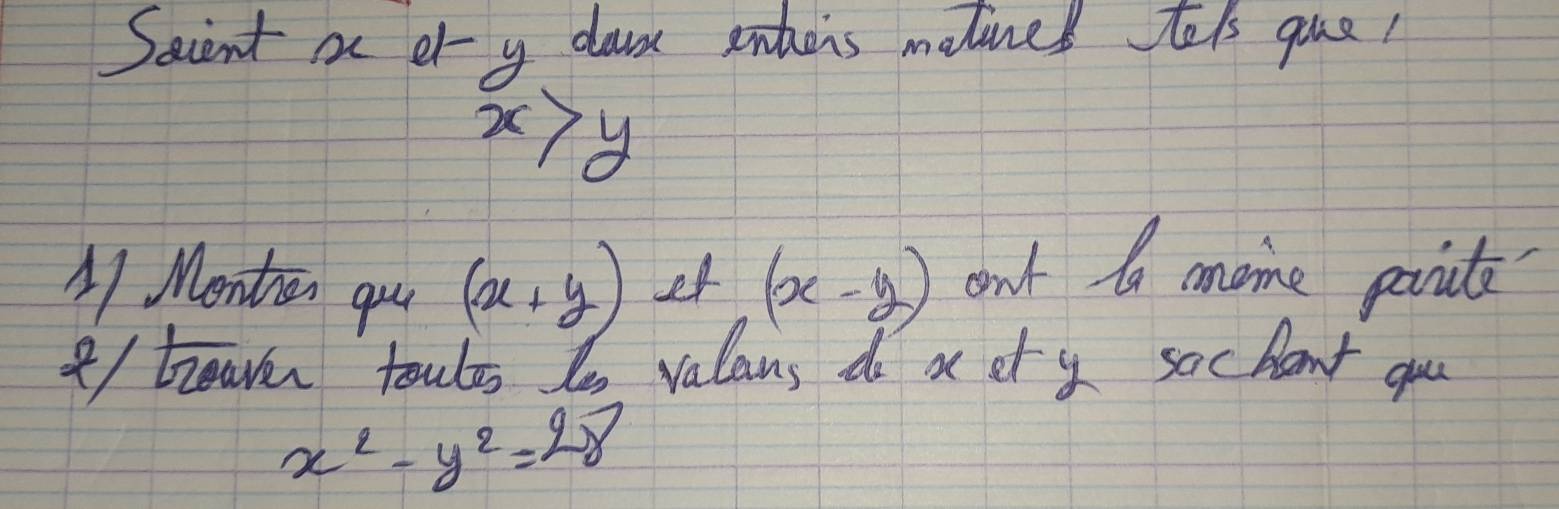 Soient x et y deux entiers naturels tels que :
x > y
1/ Montrer que (x + y) et (x - y) ont la même parité
2/ trouver toutes les valeurs de x et y sachant que
x² - y² = 28